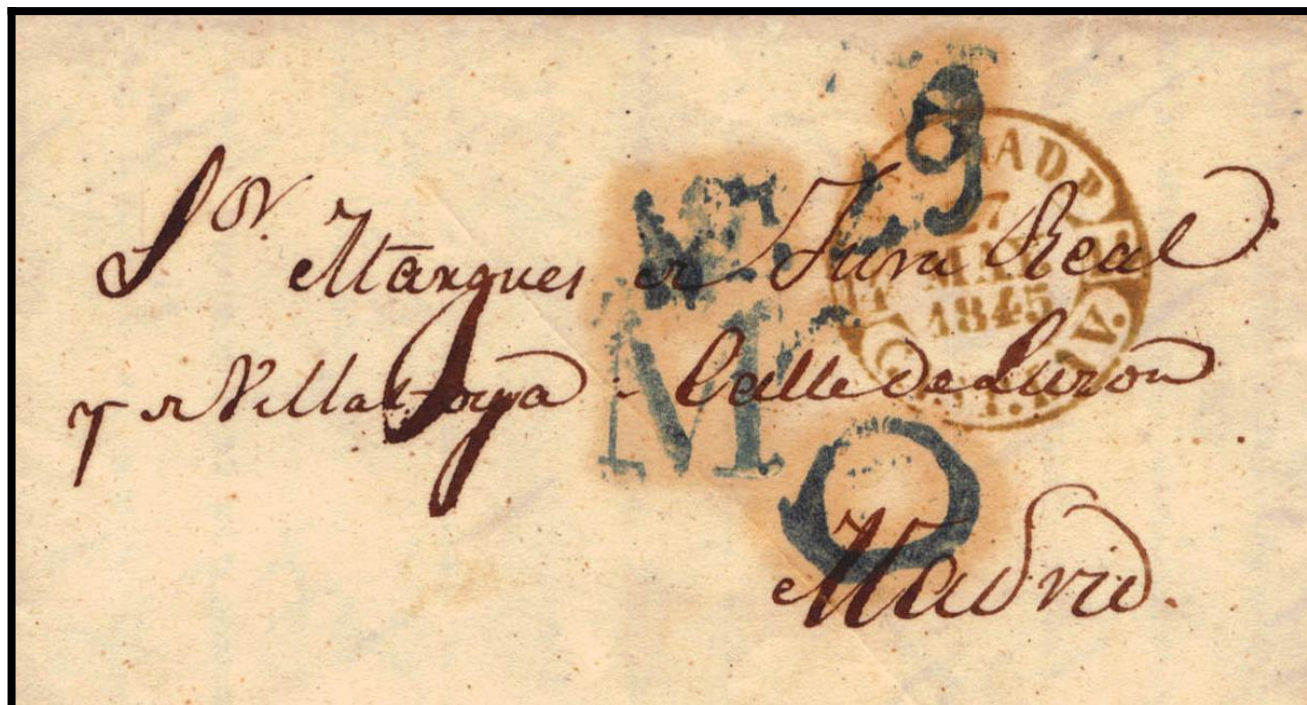 Sor. Marques de Fura Real
y de Villatoya - Calle de Luzon
Madrid.
MADRID
27
MAY
1845
M